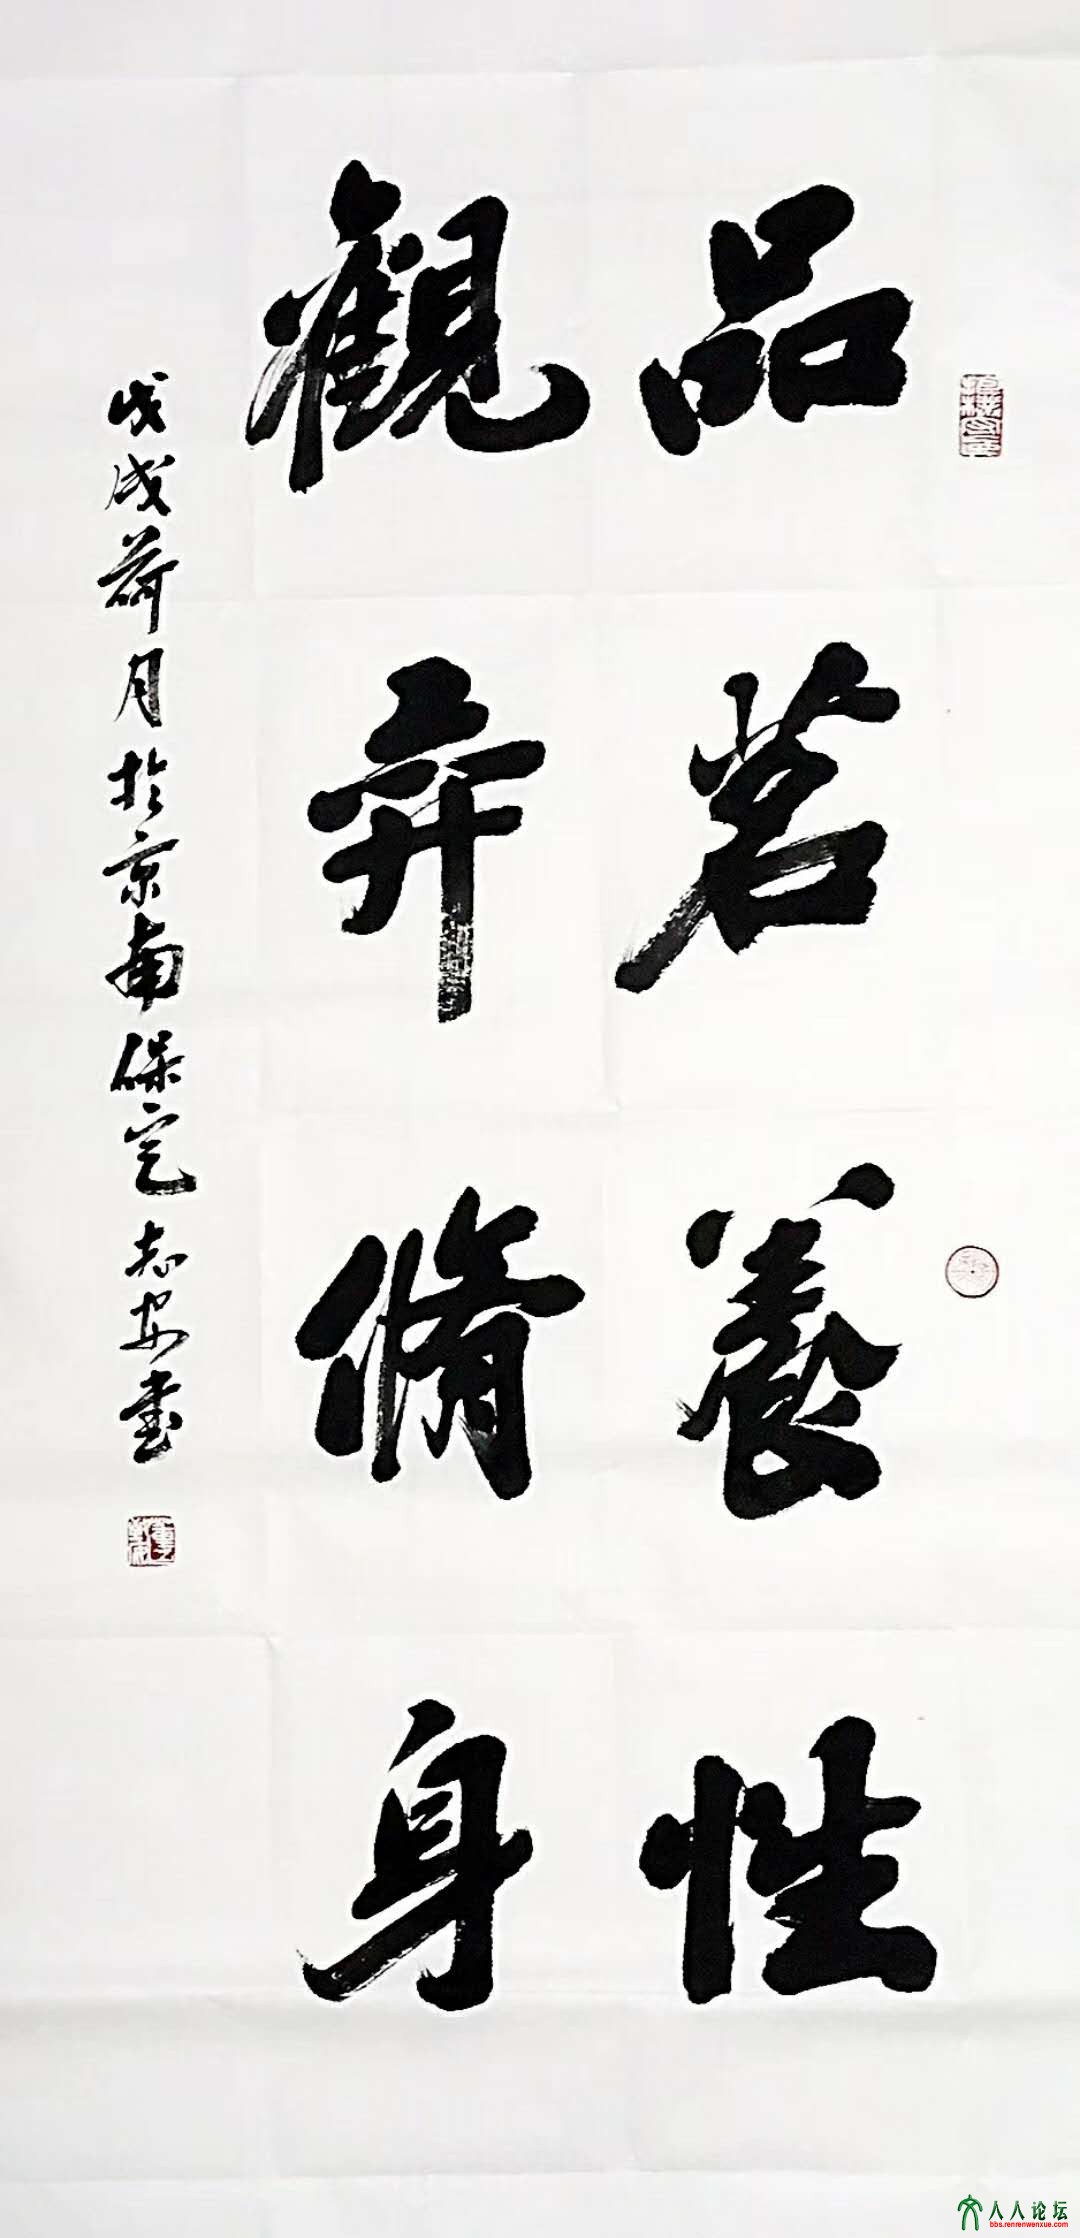 品茗養性
觀弈脩身
戊戌荷月於京南保定志安書
人人论坛
bbs.renrenwenxue.com